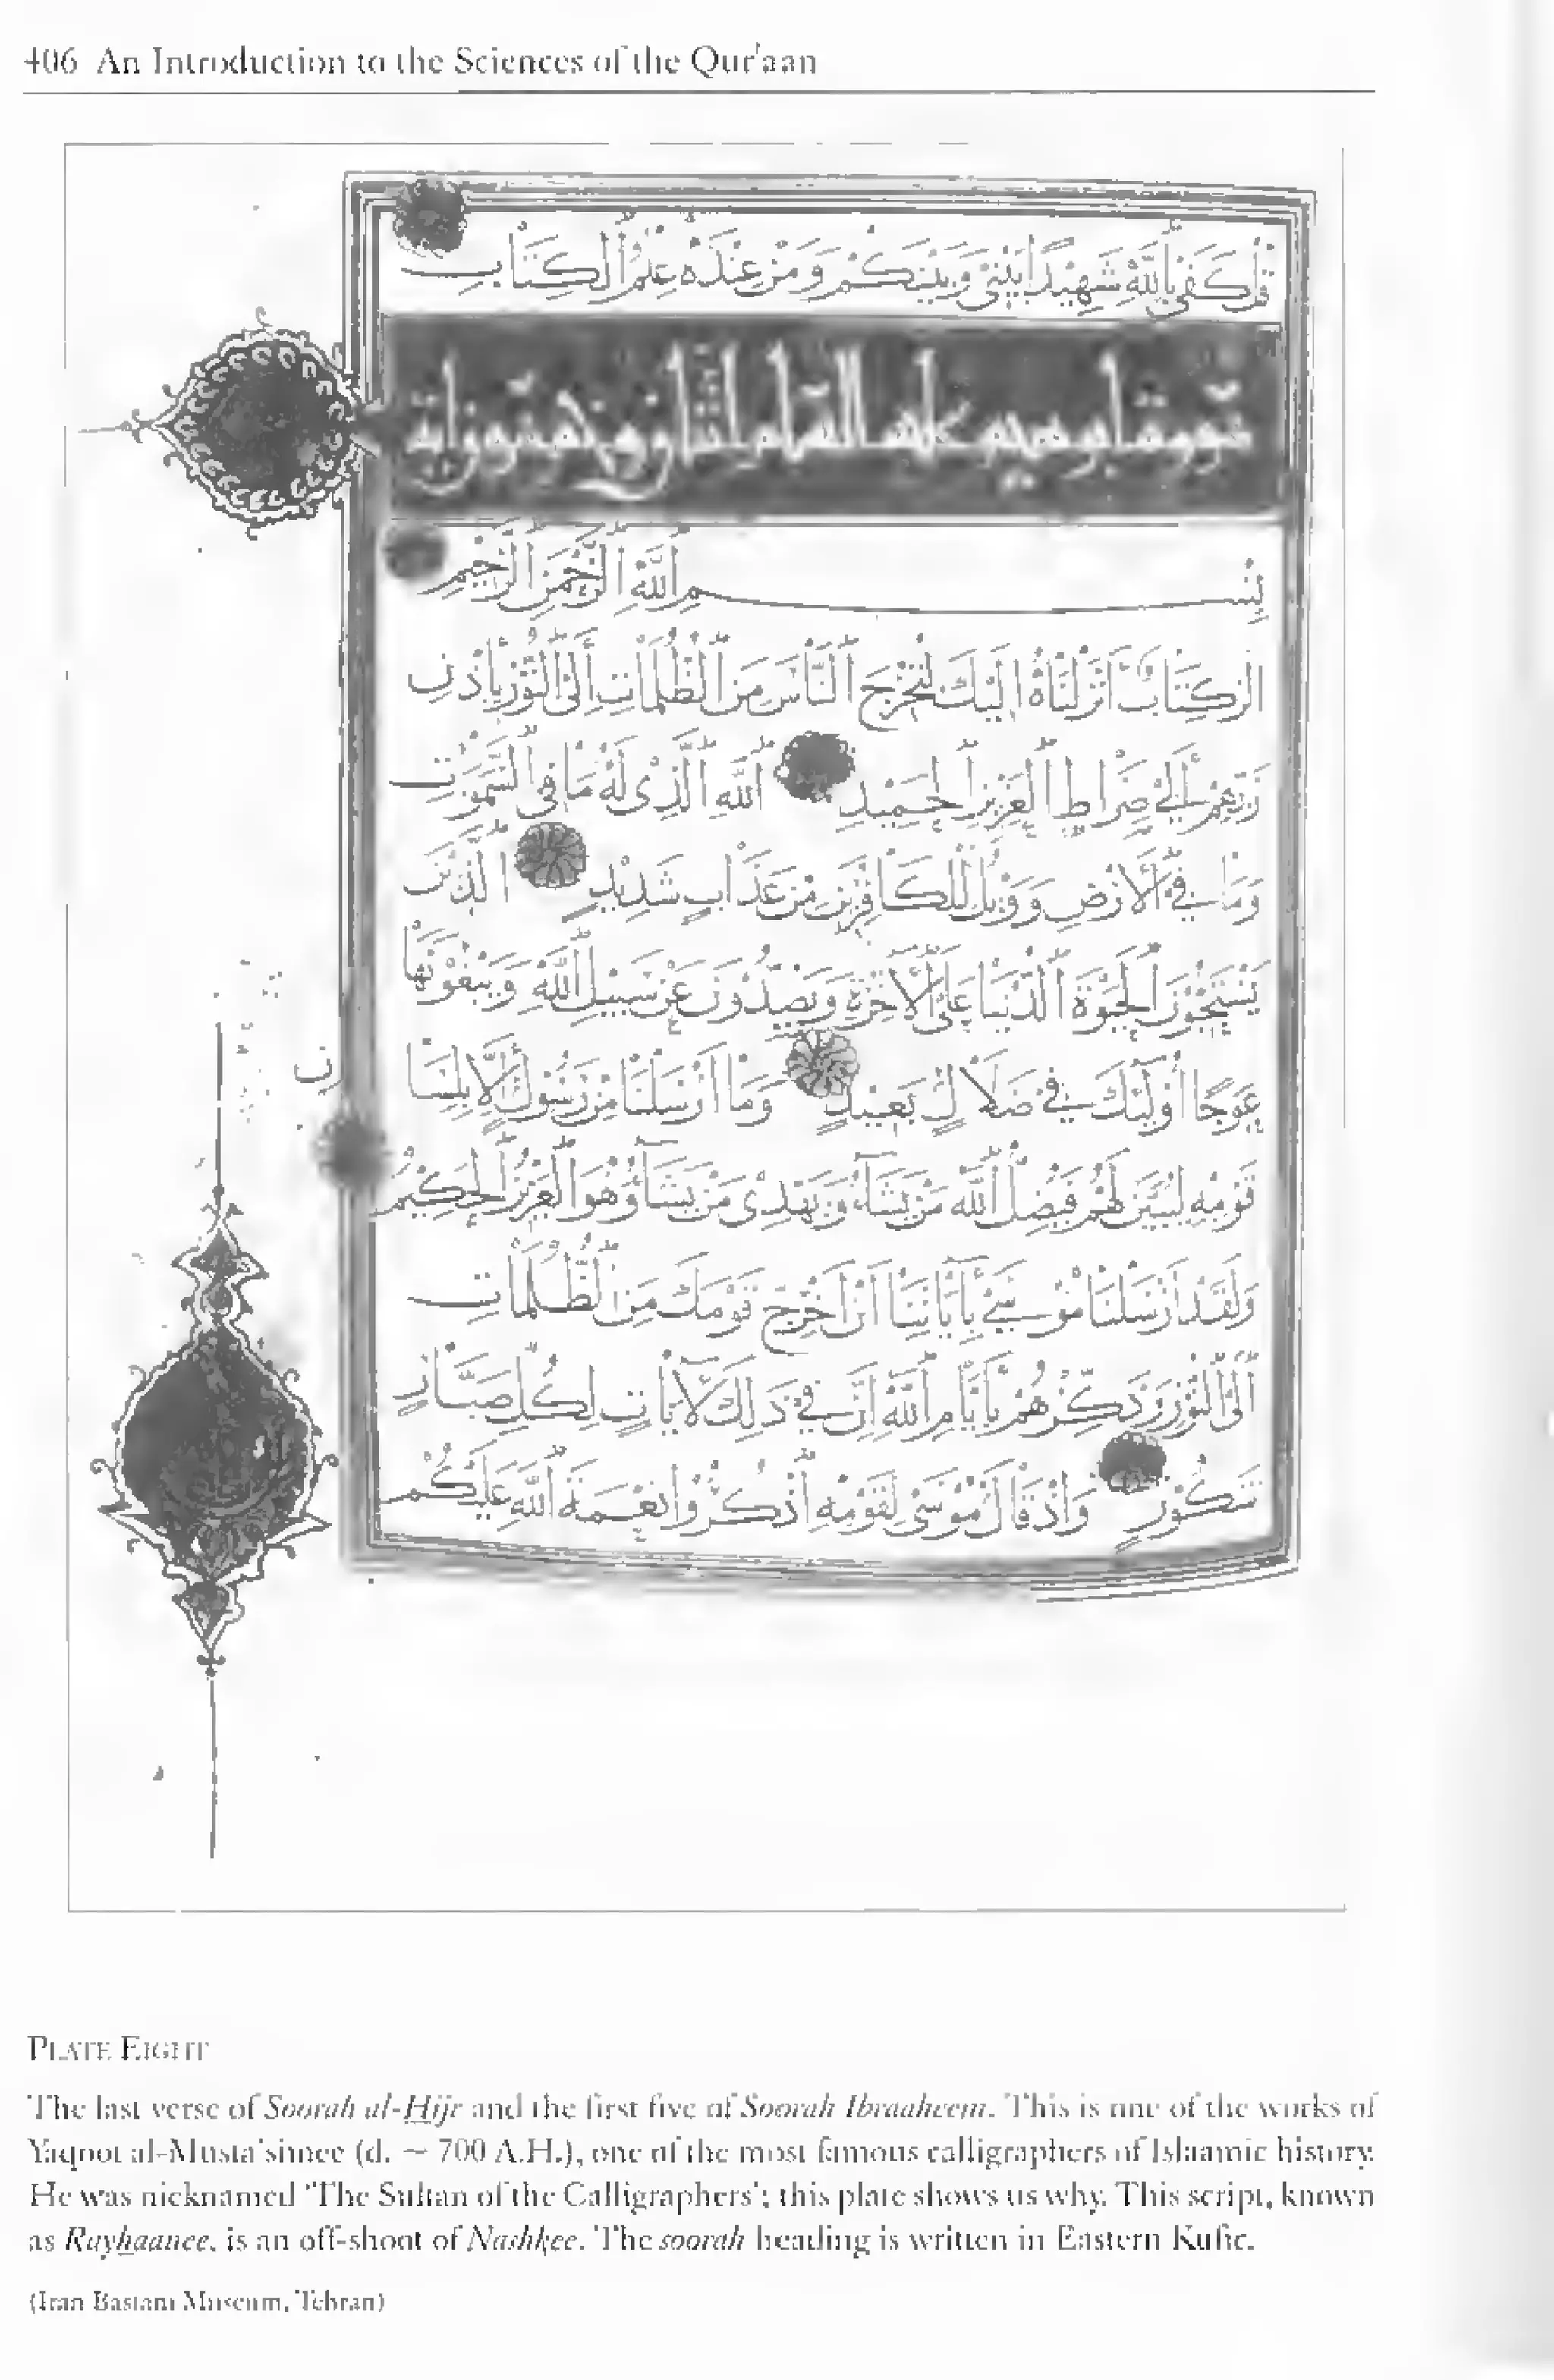 406 An Introduction to the Sciences of the Qur'aan
قُلْ كَفَى بِاللَّهِ شَهِيدًا بَيْنِي وَبَيْنَكُمْ وَمَنْ عِنْدَهُ عِلْمُ الْكِتَابِ
بِسْمِ اللَّهِ الرَّحْمَنِ الرَّحِيمِ
الر كِتَابٌ أَنْزَلْنَاهُ إِلَيْكَ لِتُخْرِجَ النَّاسَ مِنَ الظُّلُمَاتِ إِلَى النُّورِ بِإِذْنِ
رَبِّهِمْ إِلَى صِرَاطِ الْعَزِيزِ الْحَمِيدِ اللَّهِ الَّذِي لَهُ مَا فِي السَّمَوَاتِ
وَمَا فِي الْأَرْضِ وَوَيْلٌ لِلْكَافِرِينَ مِنْ عَذَابٍ شَدِيدٍ الَّذِينَ
يَسْتَحِبُّونَ الْحَيَوةَ الدُّنْيَا عَلَى الْآخِرَةِ وَيَصُدُّونَ عَنْ سَبِيلِ اللَّهِ وَيَبْغُونَهَا
عِوَجًا أُولَئِكَ فِي ضَلَالٍ بَعِيدٍ وَمَا أَرْسَلْنَا مِنْ رَسُولٍ إِلَّا بِلِسَانِ
قَوْمِهِ لِيُبَيِّنَ لَهُمْ فَيُضِلُّ اللَّهُ مَنْ يَشَاءُ وَيَهْدِي مَنْ يَشَاءُ وَهُوَ الْعَزِيزُ الْحَكِيمُ
وَلَقَدْ أَرْسَلْنَا مُوسَى بِآيَاتِنَا أَنْ أَخْرِجْ قَوْمَكَ مِنَ الظُّلُمَاتِ
إِلَى النُّورِ وَذَكِّرْهُمْ بِأَيَّامِ اللَّهِ إِنَّ فِي ذَلِكَ لَآيَاتٍ لِكُلِّ صَبَّارٍ
شَكُورٍ وَإِذْ قَالَ مُوسَى لِقَوْمِهِ اذْكُرُوا نِعْمَةَ اللَّهِ عَلَيْكُمْ
PLATE EIGHT
The last verse of Soorah al-Hijr and the first five of Soorah Ibraaheem. This is one of the works of
Yaqoot al-Musta'simee (d. ~ 700 A.H.), one of the most famous calligraphers of Islaamic history.
He was nicknamed 'The Sultan of the Calligraphers'; this plate shows us why. This script, known
as Rayhaanee, is an off-shoot of Nashkee. The soorah heading is written in Eastern Kufic.
(Iran Bastam Museum, Tehran)